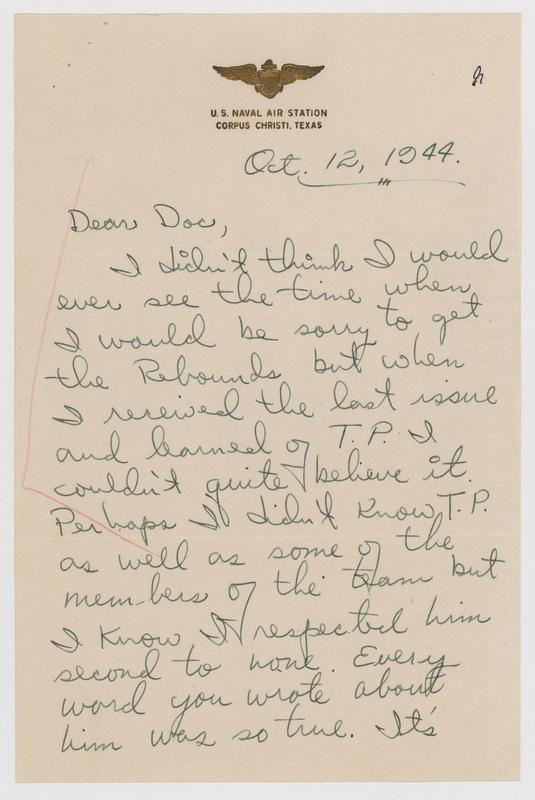 U.S. NAVAL AIR STATION
CORPUS CHRISTI, TEXAS
Oct. 12, 1944.
Dear Doc,
I didn't think I would
ever see the time when
I would be sorry to get
the Rebounds but when
I received the last issue
and learned of T.P. I
couldn't quite believe it.
Perhaps I didn't know T.P.
as well as some of the
members of the team but
I know I respected him
second to none. Every
word you wrote about
him was so true. It's